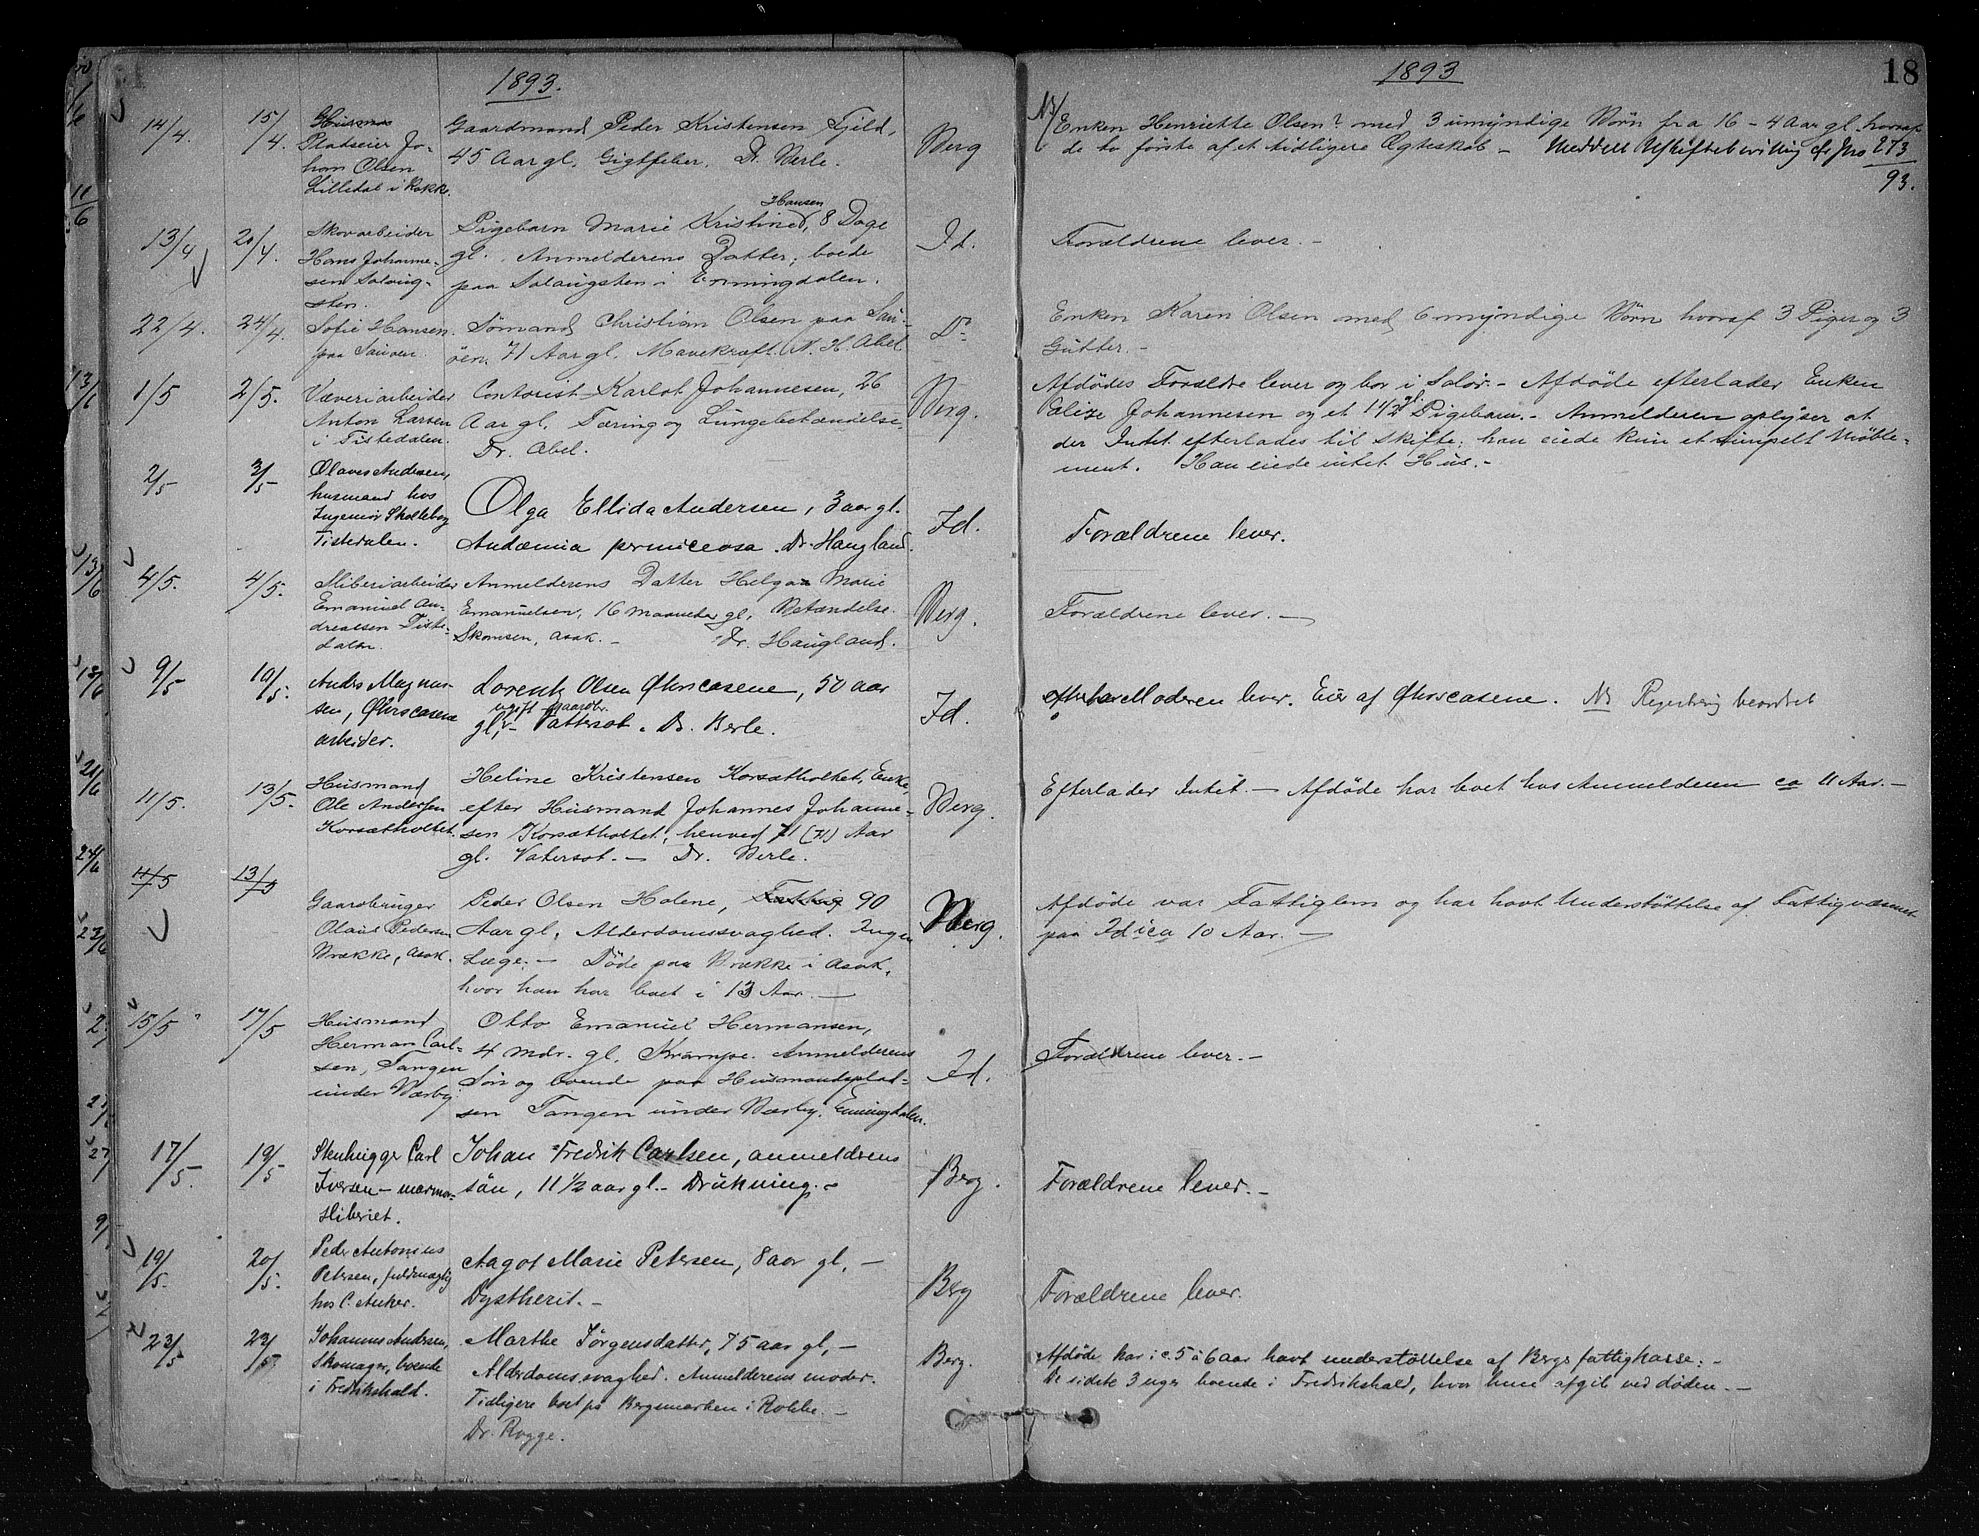 1893.
14/4. 15/4. Husma
Pladseier Jo-
han Olsen
Lilledal i Rokke.
Gaardmand Peder Kristensen Fjeld,
45 Aar gl. Gigtfeber. Dr. Berle.
Berg
13/4 20/4. Skovarbeider
Hans Johanne-
sen Solaug-
sten.
Hansen
Pigebarn Marie Kristine, 8 Dage
gl. Anmelderens Datter, boede
paa Solaugsten i Enningdalen.
Id.
22/4. 24/4. Sofie Hansen
paa Sauøen.
Sømand Christian Olsen paa Sau-
øen. 71 Aar gl. Mavekræft. N. H. Abel
Do
1/5 2/5. Væveriarbeider
Anton Larsen
i Tistedalen.
Contorist Karlot Johannesen, 26
Aar gl. Tæring og Lungebetændelse.
Dr. Abel.
Berg.
2/5 3/5 Olaves Andersen,
husmand hos
Ingeniør Stolteborg
Tistedalen.
Olga Ellida Andersen, 3 aar gl.
Andæmia perniceosa. Dr. Haugland.
Id.
4/5. 4/5. Sliberiarbeider
Emanuel An-
dreasen Tiste-
dalen.
Anmelderens Datter Helga Marie
Emanuelsen, 16 maaneder gl. Betændelse.
Skomsen, Asak. - Dr. Haugland.
Berg.
9/5 10/5. Anders Magnus-
sen, Ørscasene
arbeider.
Lorentz Olsen Ørscasene, 50 aar
ugift gaardbr.
gl, - Vattersot. Dr. Berle.
Id.
11/5. 13/5. Husmand
Ole Andersen
Korsætholtet.
Heline Kristensen Korsætholtet, Enke
efter Husmand Johannes Johanne-
sen Korsætholtet, henved 71 (71) Aar
gl. Vatersot. - Dr. Berle.
Berg.
11/5 13/5
Gaardbruger
Olaus Pedersen
Brække, Asak.
Peder Olsen Holene, Fattig 90
Aar gl. Alderdomssvaghed. Ingen
Læge. - Døde paa Brække i Asak,
hvor han har boet i 13 Aar. -
Berg.
15/5 17/5 Husmand
Herman Carl-
sen, Tangen
under Bærby.
Otto Emanuel Hermansen,
4 mdr. gl. Krampe. Anmelderens
Søn og boende paa Husmandsplad-
sen Tangen under Bærby. Enningdalen.
Id.
17/5. 19/5 Stenhugger Carl
Iversen - marmor-
sliberiet.
Johan Fredrik Carlsen, anmeldrens
søn, 11 1/2 aar gl. - Drukning. -
Berg.
19/5. 20/5. Peder Antonius
Petersen, fuldmægtig
hos C. Anker.
Aagot Marie Petersen, 8 aar gl, -
Dystherit. -
Berg
23/5 23/5. Johannes Andersen,
Skomager, boende
i Fredrikshald.
Marthe Jørgensdatter, 75 aar gl, -
Alderdomssvaghed. Anmelderens moder.
Tidligere boet på Bergsmarken i Rokke. -
Dr. Rogge.
Berg.
1893
18
NB/ Enken Henriette Olsen? med 3 umyndige Børn fra 16 - 4 Aar gl. hvoraf
de to første af et tidligere Ægteskab - Meddelt Uskiftebevilling cfr Jno 273
93.
Forældrene lever. -
Enken Karen Olsen med 6 myndige Børn hvoraf 3 Piger og 3
Gutter. -
Afdødes Forældre lever og bor i Solør. - Afdøde efterlader Enken
Valize Johannesen og et 1 1/2 gl. Pigebarn. - Anmelderen oplyser at
der Intet efterlades til skifte; han eiede kun et simpelt Møble-
ment. Han eiede intet Hus. -
Forældrene lever.
Forældrene lever. -
Moderen lever. Eier af Ørscasene. NB Registrering beordret
Efterlader Intet. - Afdøde har boet hos Anmelderen ca 11 Aar. -
Afdøde var Fattiglem og har havt Understøttelse af Fattigvæsenet
paa Id i ca 10 Aar. -
Forældrene lever. -
Forældrene lever. -
Forældrene lever.
Afdøde har i c. 5 à 6 aar havt understøttelse af Bergs fattigkasse; -
De sidste 3 uger boende i Fredrikshald, hvor hun afgik ved døden. -